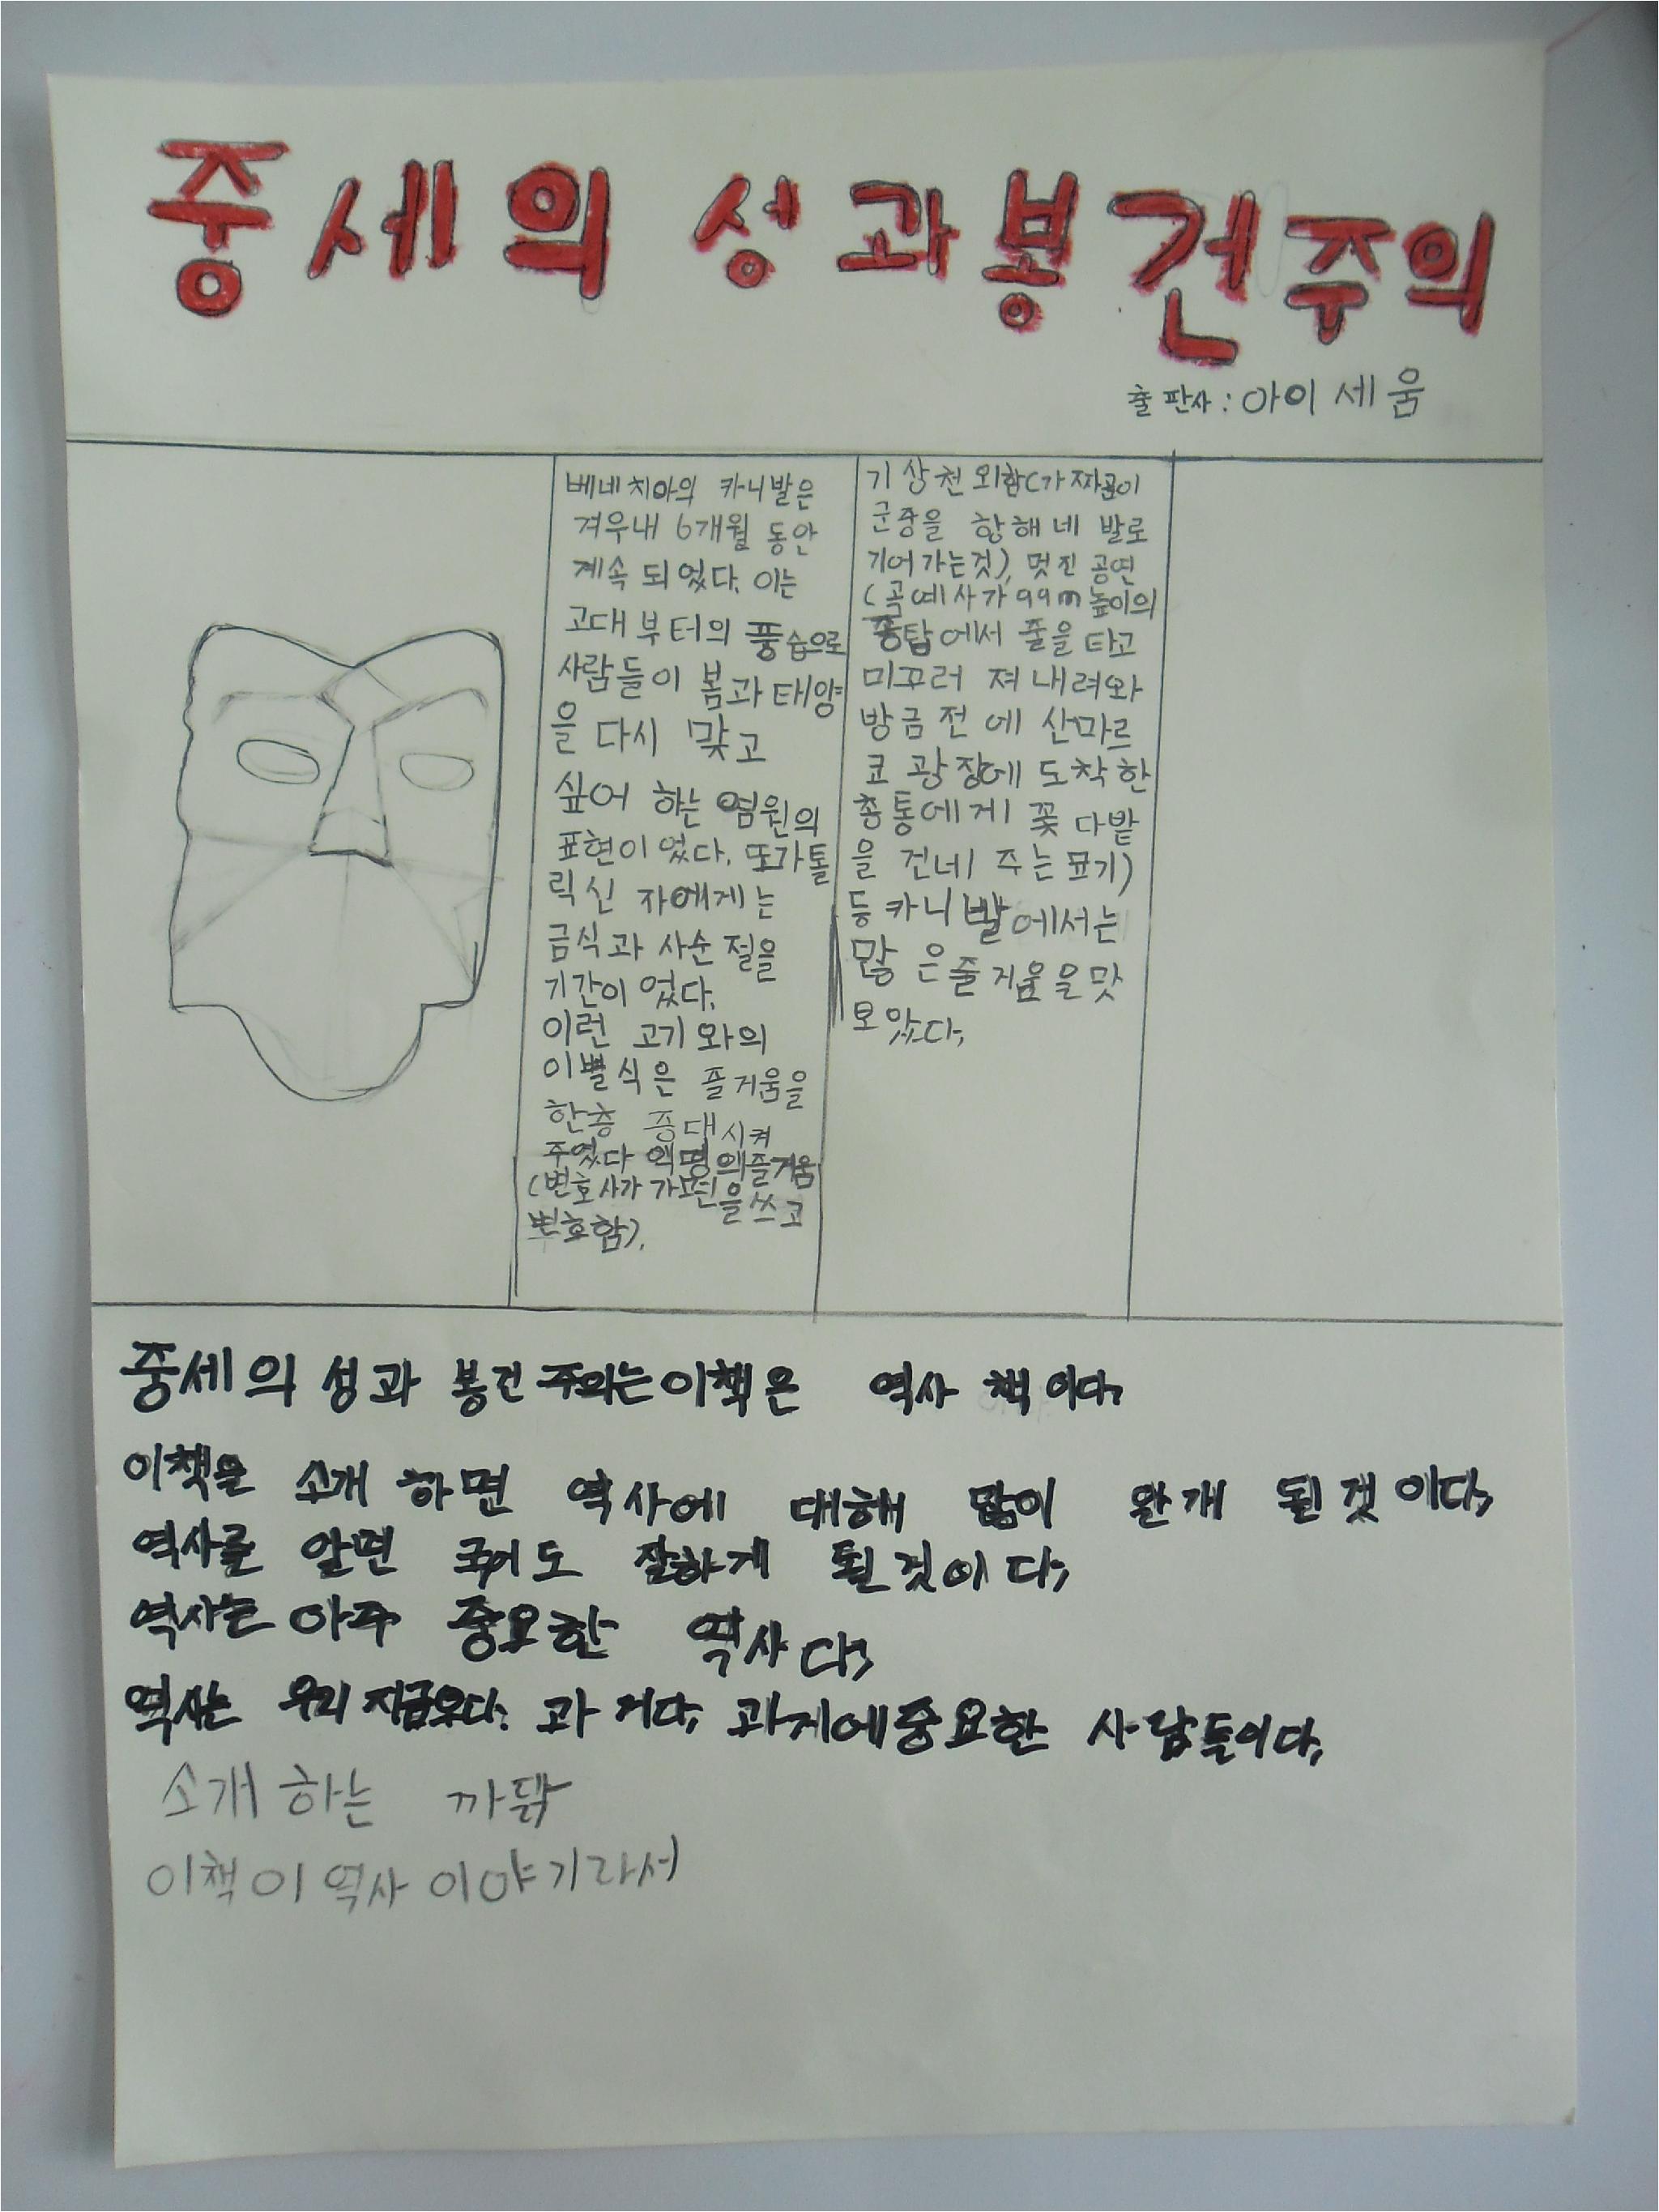 중세의 성과 봉건주의
출판사: 아이세움
베네치아의 카니발은
겨우내 6개월 동안
계속 되었다. 이는
고대부터의 풍습으로
사람들이 봄과 태양
을 다시 맞고
싶어 하는 염원의
표현이었다. 또가톨
릭신 자에게는
금식과 사순절을
기간이 었다.
이런 고기와의
이별식은 즐거움을
한층 증대시켜
주었다 익명의즐거움
(변호사가 가면을 쓰고
변호함).
기상천외함(가짜곰이
군중을 향해 네 발로
기어가는것), 멋진 공연
(곡예사가 99m높이의
종탑에서 줄을 타고
미끄러 져 내려와
방금 전에 산마르
코 광장에 도착한
총통에게 꽃 다발
을 건네 주는 묘기)
등 카니발에서는
많은 즐거움을 맛
보았다.
중세의 성과 봉건 주의는 이책은 역사 책이다.
이책을 소개 하면 역사에 대해 많이 완개 될것 이다.
역사를 알면 국어도 잘하게 될것이다.
역사는 아주 중요한 역사다.
역사는 우리 지금우다. 과거다. 과거에중요한 사람들이다.
소개 하는 까닭
이책이 역사 이야기라서